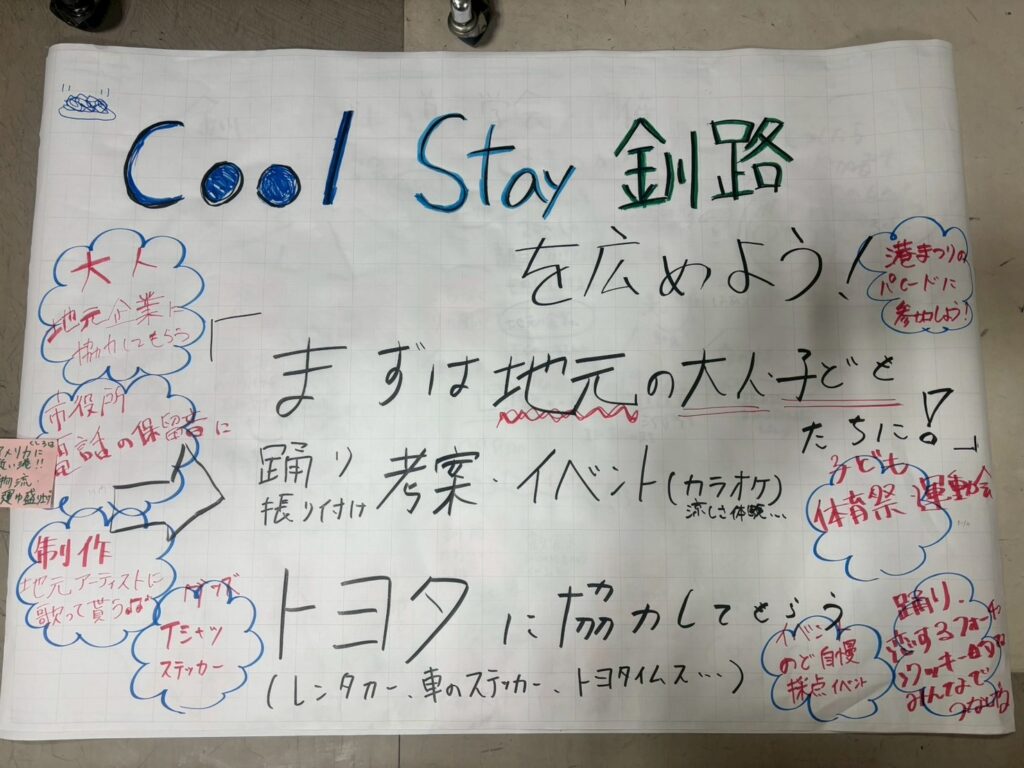 Cool Stay 釧路
を広めよう!
港まつりの
パレードに
参加しよう!
大人
地元企業に
協力してもらう
「まずは地元の大人・子ども
たちに!」
市役所
電話の保留音に
踊り 考案・イベント(カラオケ)
振り付け
涼しさ体験…
子ども
体育祭・運動会
制作
地元アーティストに
歌って貰う
グッズ
Tシャツ
ステッカー
トヨタに協力してもらう
(レンタカー、車のステッカー、トヨタイムズ…)
イベント
のど自慢
採点イベント
踊り、
恋するフォーチュン
クッキー的な
みんなで
つなげる
アメリカに
物流